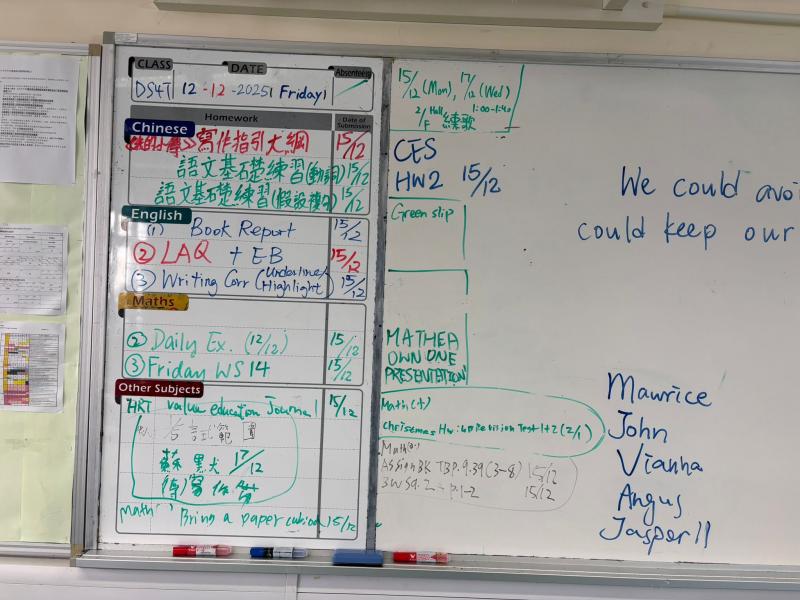 CLASS DATE Absentees
DS4T 12-12-2025 (Friday)
Homework Date of Submission
Chinese
寫作指引大綱 15/12
語文基礎練習(動詞) 15/12
語文基礎練習(假設複句) 15/12
English
(1) Book Report 15/12
② LAQ + EB 15/12
③ Writing Corr (Underline/Highlight) 15/12
Maths
② Daily Ex. (12/12) 15/12
③ Friday WS 14 15/12
Other Subjects
HRT value education Journal 15/12
試範圍
蘇 黑犬 17/12
寫作
Bring a paper 15/12
15/12 (Mon), 17/12 (Wed)
2/F Hall 1:00-1:40
練歌
CES
HW2 15/12
Green slip
MATHEA
OWN ONE
PRESENTATION
Math(+)
Christmas Hw: Test 1+2 (2/1)
Math
Assign BK P.9.39 (3-8) 15/12
p.1-2 15/12
We could avoi
could keep our
Maurice
John
Vianna
Angus
Jasper